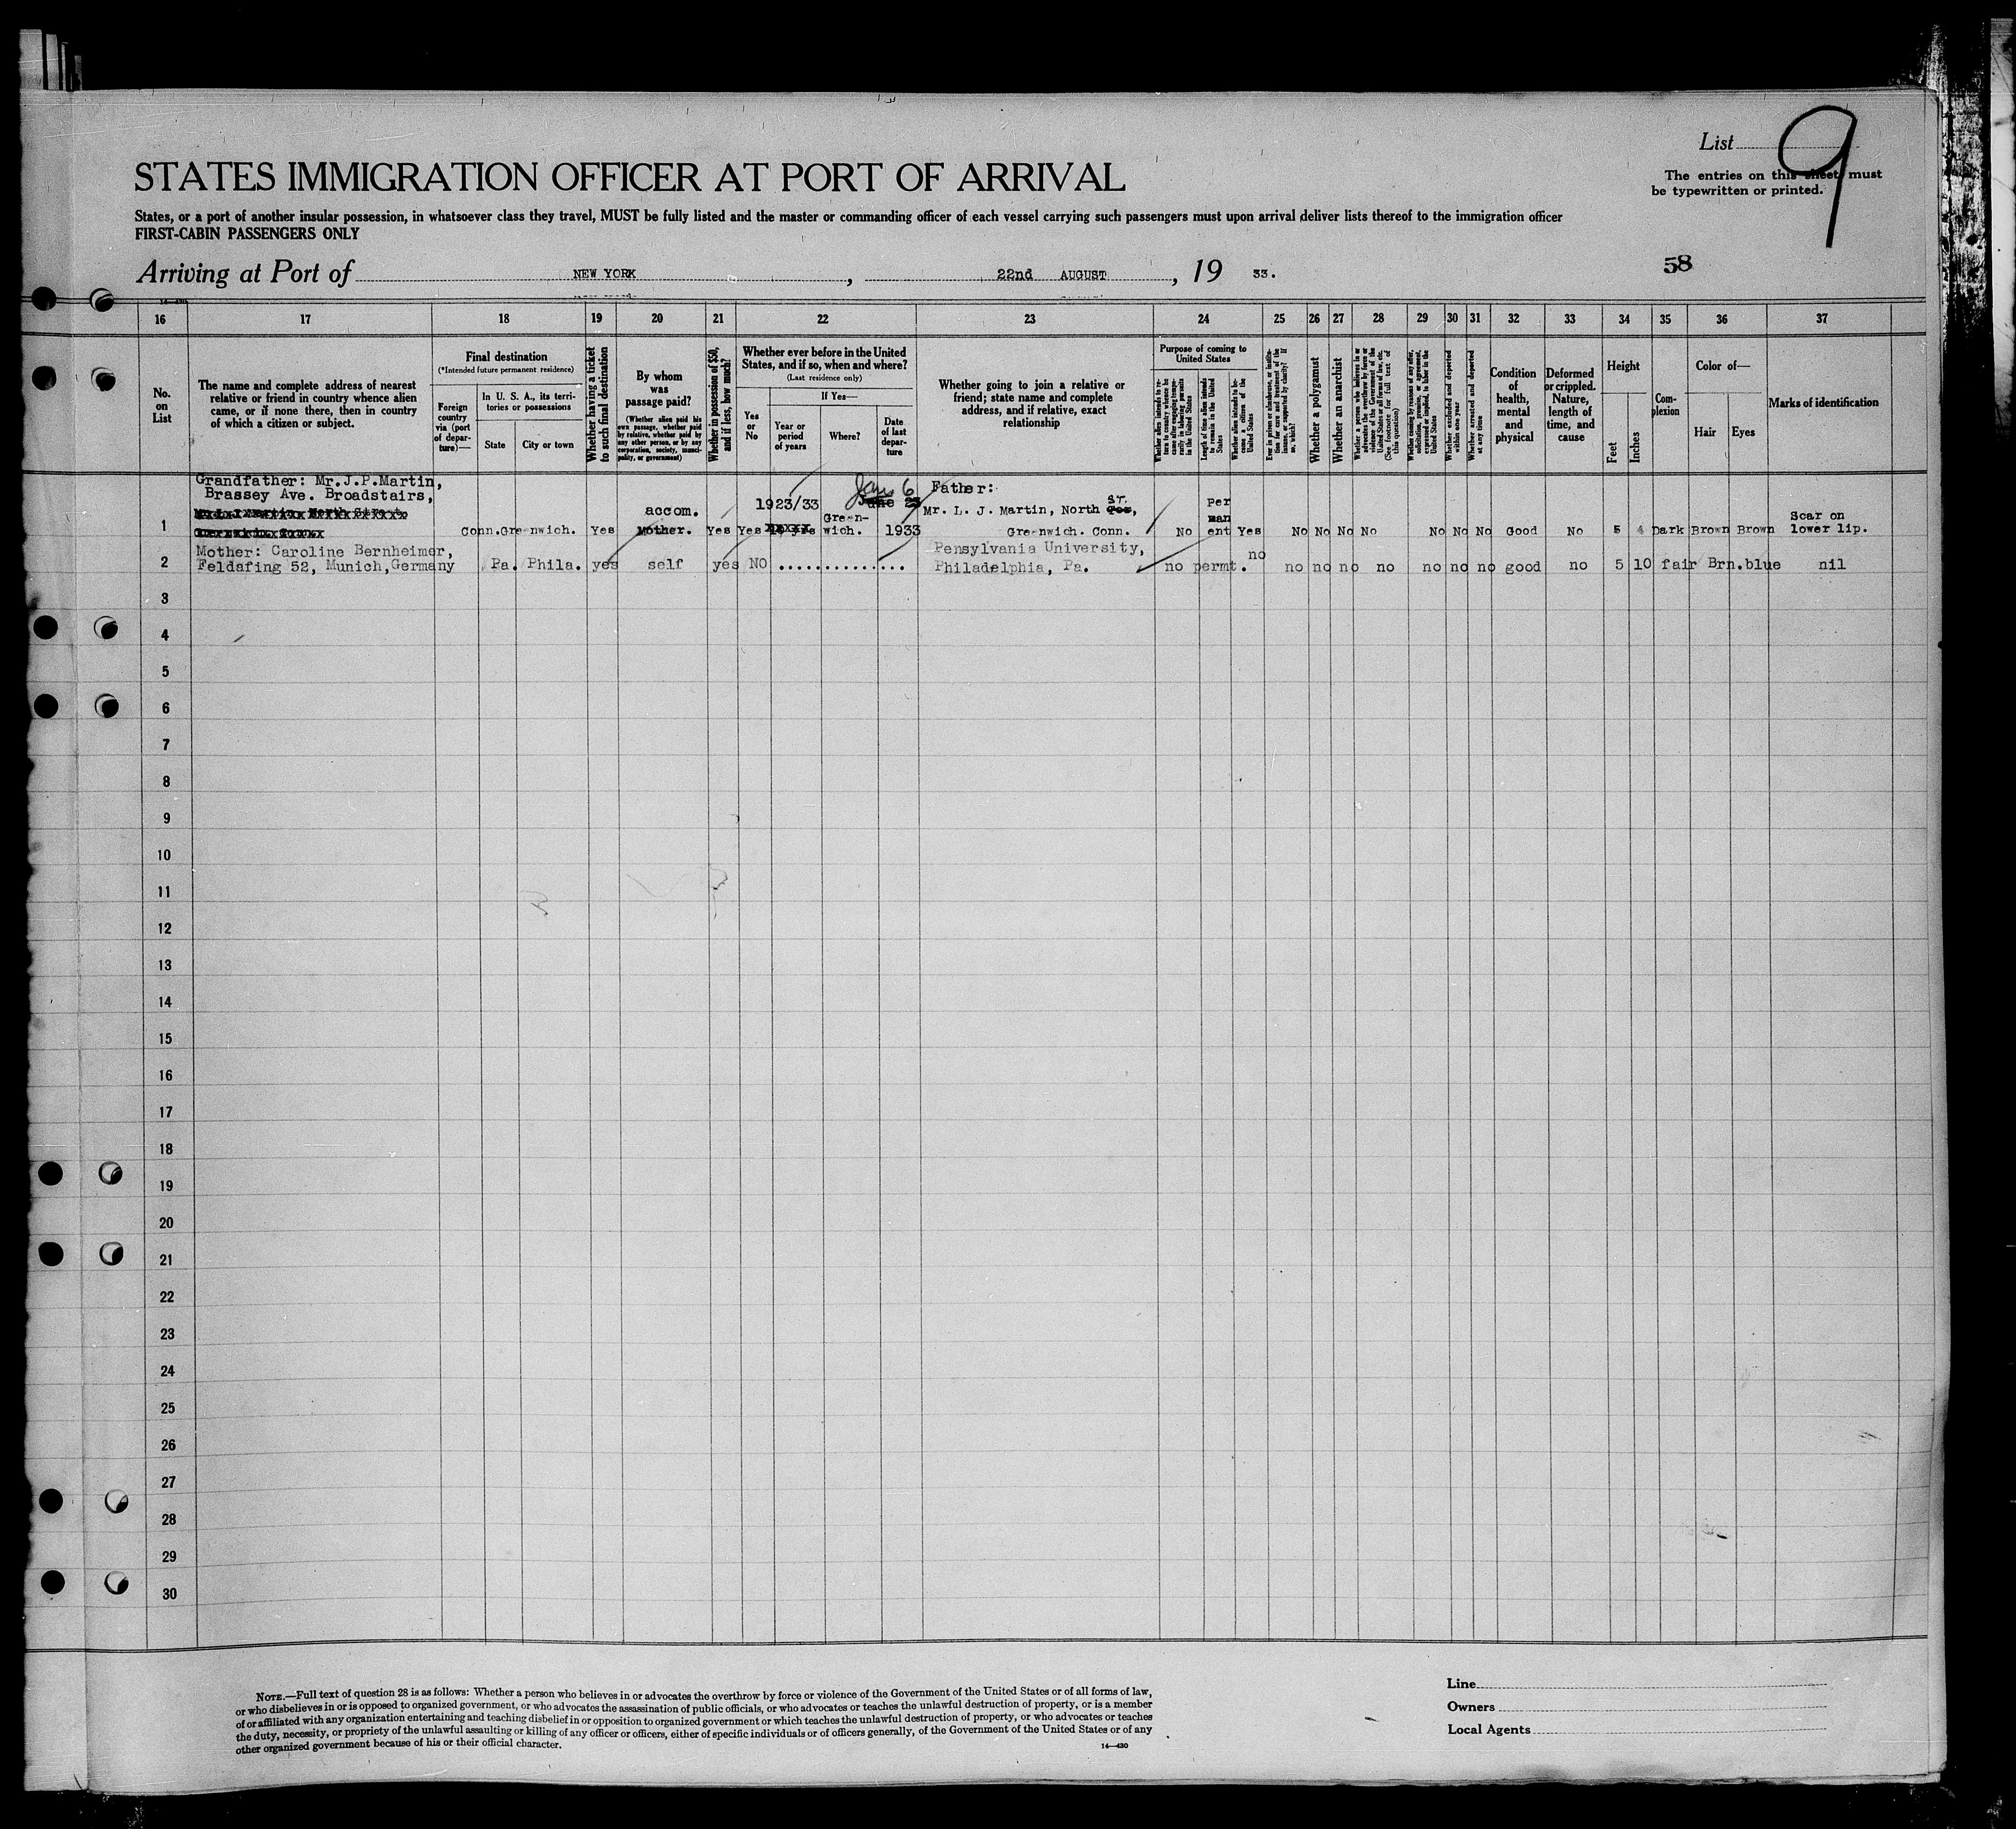 List 9
STATES IMMIGRATION OFFICER AT PORT OF ARRIVAL
The entries on this sheet must
be typewritten or printed.
States, or a port of another insular possession, in whatsoever class they travel, MUST be fully listed and the master or commanding officer of each vessel carrying such passengers must upon arrival deliver lists thereof to the immigration officer
FIRST-CABIN PASSENGERS ONLY
Arriving at Port of NEW YORK, 22nd AUGUST, 19 33.
58
16 17 18 19 20 21 22 23 24 25 26 27 28 29 30 31 32 33 34 35 36 37
No. on List
The name and complete address of nearest
relative or friend in country whence alien
came, or if none there, then in country
of which a citizen or subject.
Final destination
(*Intended future permanent residence)
Foreign country via (port of departure)—
In U. S. A., its territories or possessions
State
City or town
Whether having a ticket to such final destination
By whom was passage paid?
(Whether alien paid his own passage, whether paid by relative, whether paid by any other person, or by any corporation, society, municipality, or government)
Whether in possession of $50, and if less, how much?
Whether ever before in the United
States, and if so, when and where?
(Last residence only)
Yes or No
If Yes—
Year or period of years
Where?
Date of last departure
Whether going to join a relative or
friend; state name and complete
address, and if relative, exact
relationship
Purpose of coming to United States
Whether alien intends to return to country whence he came after engaging temporarily in laboring pursuits in the United States
Length of time alien intends to remain in the United States
Whether alien intends to become a citizen of the United States
Ever in prison or almshouse, or institution for care and treatment of the insane, or supported by charity? If so, which?
Whether a polygamist
Whether an anarchist
Whether a person who believes in or advocates the overthrow by force or violence of the Government of the United States or all forms of law, etc. (See footnote for full text of this question)
Whether coming by reasons of any offer, solicitation, promise, or agreement, expressed or implied, to labor in the United States
Whether excluded and deported within one year
Whether arrested and deported at any time
Condition of health, mental and physical
Deformed or crippled. Nature, length of time, and cause
Height
Feet
Inches
Complexion
Color of—
Hair
Eyes
Marks of identification
Grandfather: Mr.J.P.Martin,
Brassey Ave. Broadstairs,
1 Conn. Greenwich. Yes accom. Mother. Yes Yes 1923/33 Greenwich. Jan 6 1933 Father: Mr. L. J. Martin, North ST., Greenwich. Conn. No Permanent Yes No No No No No No No Good No 5 4 Dark Brown Brown Scar on lower lip.
Mother: Caroline Bernheimer,
2 Feldafing 52, Munich,Germany Pa. Phila. yes self yes NO .............. Pensylvania University, Philadelphia, Pa. no permt. no no no no no no no no good no 5 10 fair Brn. blue nil
3
4
5
6
7
8
9
10
11
12
13
14
15
16
17
18
19
20
21
22
23
24
25
26
27
28
29
30
NOTE.—Full text of question 28 is as follows: Whether a person who believes in or advocates the overthrow by force or violence of the Government of the United States or of all forms of law,
or who disbelieves in or is opposed to organized government, or who advocates the assassination of public officials, or who advocates or teaches the unlawful destruction of property, or is a member
of or affiliated with any organization entertaining and teaching disbelief in or opposition to organized government or which teaches the unlawful destruction of property, or who advocates or teaches
the duty, necessity, or propriety of the unlawful assaulting or killing of any officer or officers, either of specific individuals or of officers generally, of the Government of the United States or of any
other organized government because of his or their official character.
14—430
Line
Owners
Local Agents